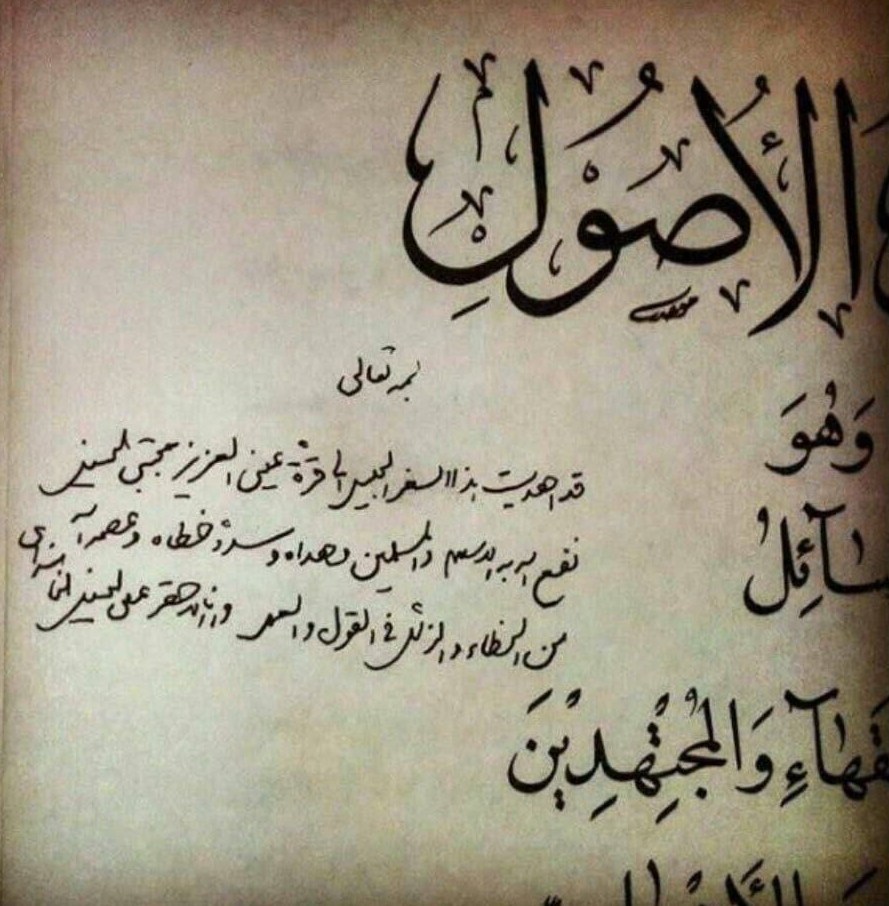 الأُصُولِ
بسمه تعالى
وَهُوَ
قد اهديت هذا السفر الجليل الى قرة عيني العزيز مجتبى الحسيني
نفع الله به الاسلام والمسلمين وهداه وسدد خطاه وعصمه
من الخطاء والزلل في القول والعمل وانا الاحقر علي الحسيني
وَالمُجْتَهِدِيْنَ